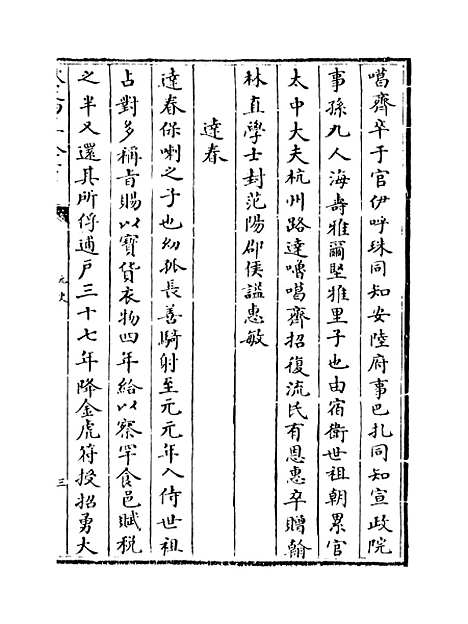 噶齊卒于官伊呼珠同知安陸府事巴扎同知宣政院
事孫九人海壽雅爾堅雅里子也由宿衛世祖朝累官
太中大夫杭州路達嚕噶齊招復流民有恩惠卒贈翰
林直學士封范陽郡侯諡惠敏
達春
達春保喇之子也幼孤長善騎射至元元年入侍世祖
占對多稱旨賜以寶貨衣物四年給以察罕食邑賦稅
之半又還其所俘逋戶三十七年降金虎符授招勇大
元史
三